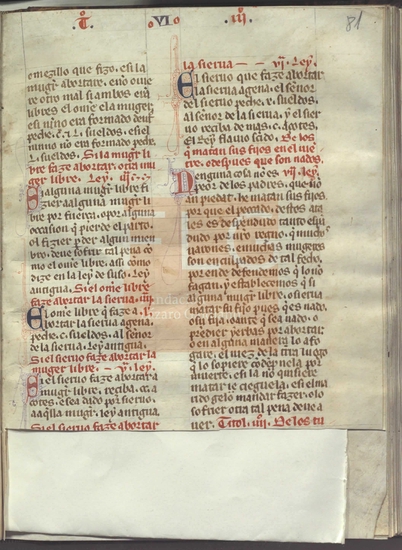 T. VI III. 81
omezillo que fizo. e si la
muger abortare. e uno mue
re otro mal si ambos era
libres el ome e la muger.
e si nino era formado deue
peche. sueldos. e si el
nino no era formado peche
sueldos. Si la muger li
bre faze abortar. otra mu
ger libre. Ley. iii.
Si alguna muger libre fi
zier a alguna muger li
bre por fuerça. o por alguna
occasion que pierde el parto.
ol fizier perder algun mien
bro. deue sofrir tal pena co
mo el ome libre. assi como
dize en la ley de suso. Ley
antigua. Si el ome libre
faze abortar la sierua. iiii.
El ome libre que faze a
bortar la sierua agena.
peche. sueldos. al señor
de la sierua. Ley antigua.
Si el sieruo faze abortar la
muger libre. v. ley.
Si el sieruo faze abortar a
muger libre. reciba. cc. a
cotes. e sea dado por sieruo.
a aquella muger. ley antigua.
Si el sieruo faze abortar
la sierua vi. Ley.
El sieruo que faze abortar
la sierua agena. el señor
del sieruo peche. x. sueldos.
al señor de la sierua. y el sier
uo reciba de mas. c. açotes.
El Rey flauio scido. De los
que matan sus fijos en el uie
tre. o despues que son nados.
Nenguna cosa no es vii. ley
peor de los padres. que no
an piedat. he matan sus fijos.
por que el pecado. destos ata
les es despendudo tanto espa
dudo por nro regno. que muchos
uarones. e muchas mugeres
son enculpados de tal fecho.
por ende defendemos que lo no
fagan. y establecemos que si
alguna muger libre. o sierua
matar su fijo pues que es nado.
o su fija. o ante que sea nado. o
predier yerbas por abortar.
o en alguna manera lo afo
gare. el iuez de la tierra luego
que lo sopiere condepnela por
muerte. e si la no quisiere
matar. ciegue la. e si el ma
rido gelo mandar fazer. o lo
sofrier otra tal pena deue a
uer. Titol. iiii. De los tu